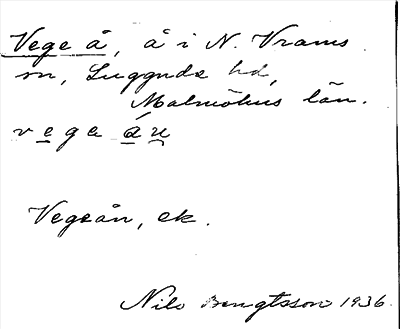 Vege å, å i N. Vrams
sn, Luggude hd,
Malmöhus län.
vege áu
Vegeån, ek.
Nils Bengtsson 1936.